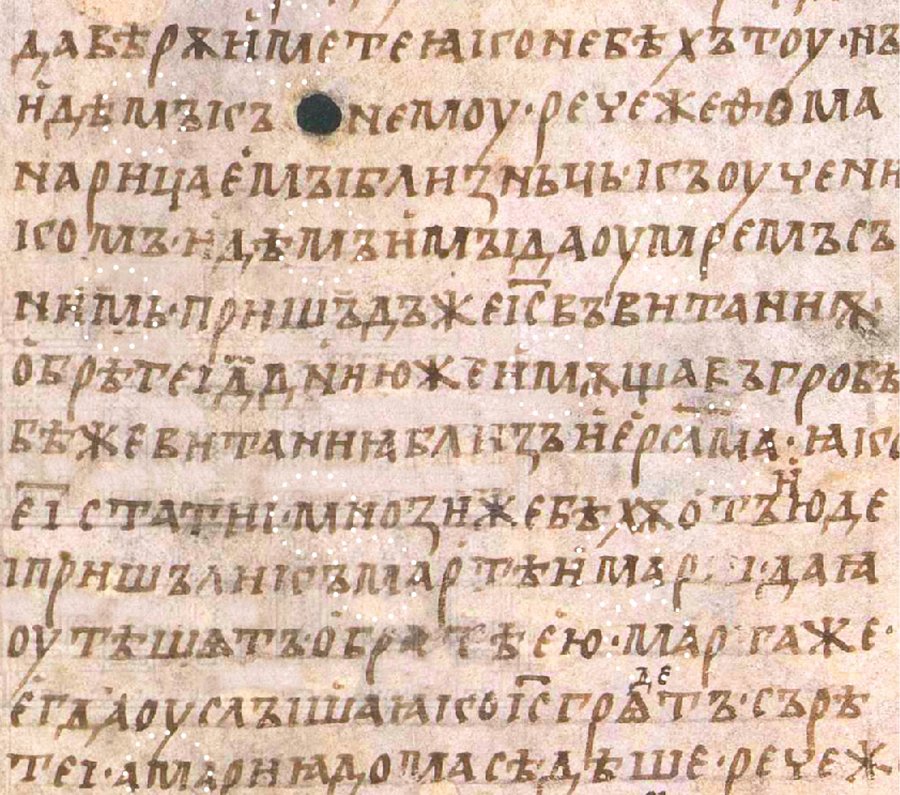 давѣрѫ имете ꙗко не бѣхъ тоу · нъ
идѣмъ къ немоу · рече же ѳома
нарицаемꙑ близньць · къ оучени
комъ · идѣмъ и мꙑ да оумремъ съ
нимь · пришъдъ же іс҃ въ витаниѭ ·
обрѣте і д҃ дни юже имѫща въ гробѣ
бѣ же витаниꙗ близъ иерслма · ꙗко
еі҃ статиі · мнози же бѣхѫ отъ июде
і пришъли къ мартѣ и марі · да ꙗ
оутѣшѧтъ о братѣ ею · марта же ·
егда оуслꙑша ꙗко іс҃ грѧдетъ · сърѣ
те і · а мариꙗ дома сѣдѣше · рече ж